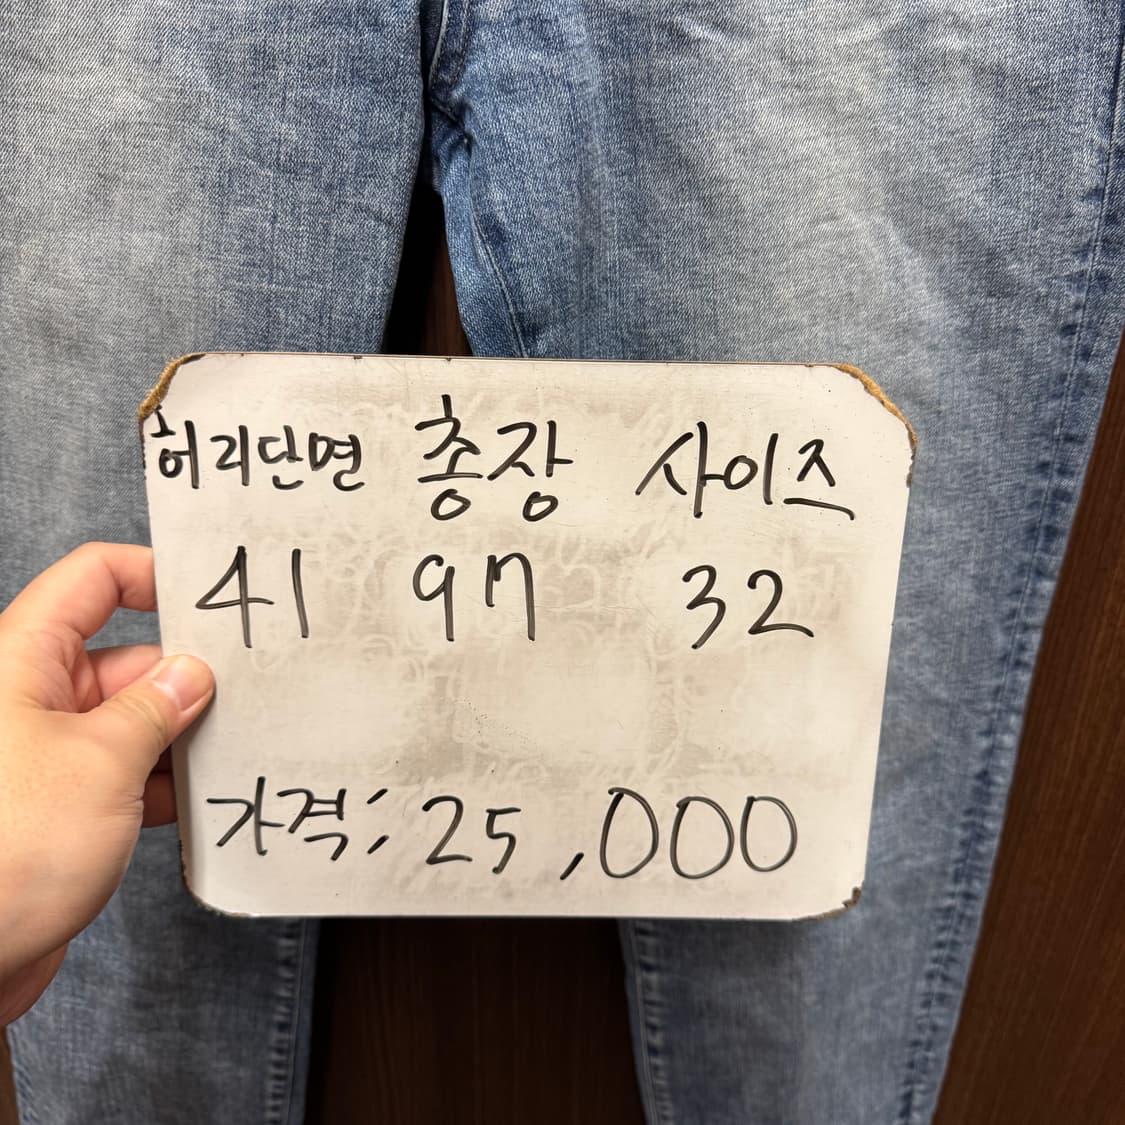 허리단면 총장 사이즈
41 97 32
가격: 25,000